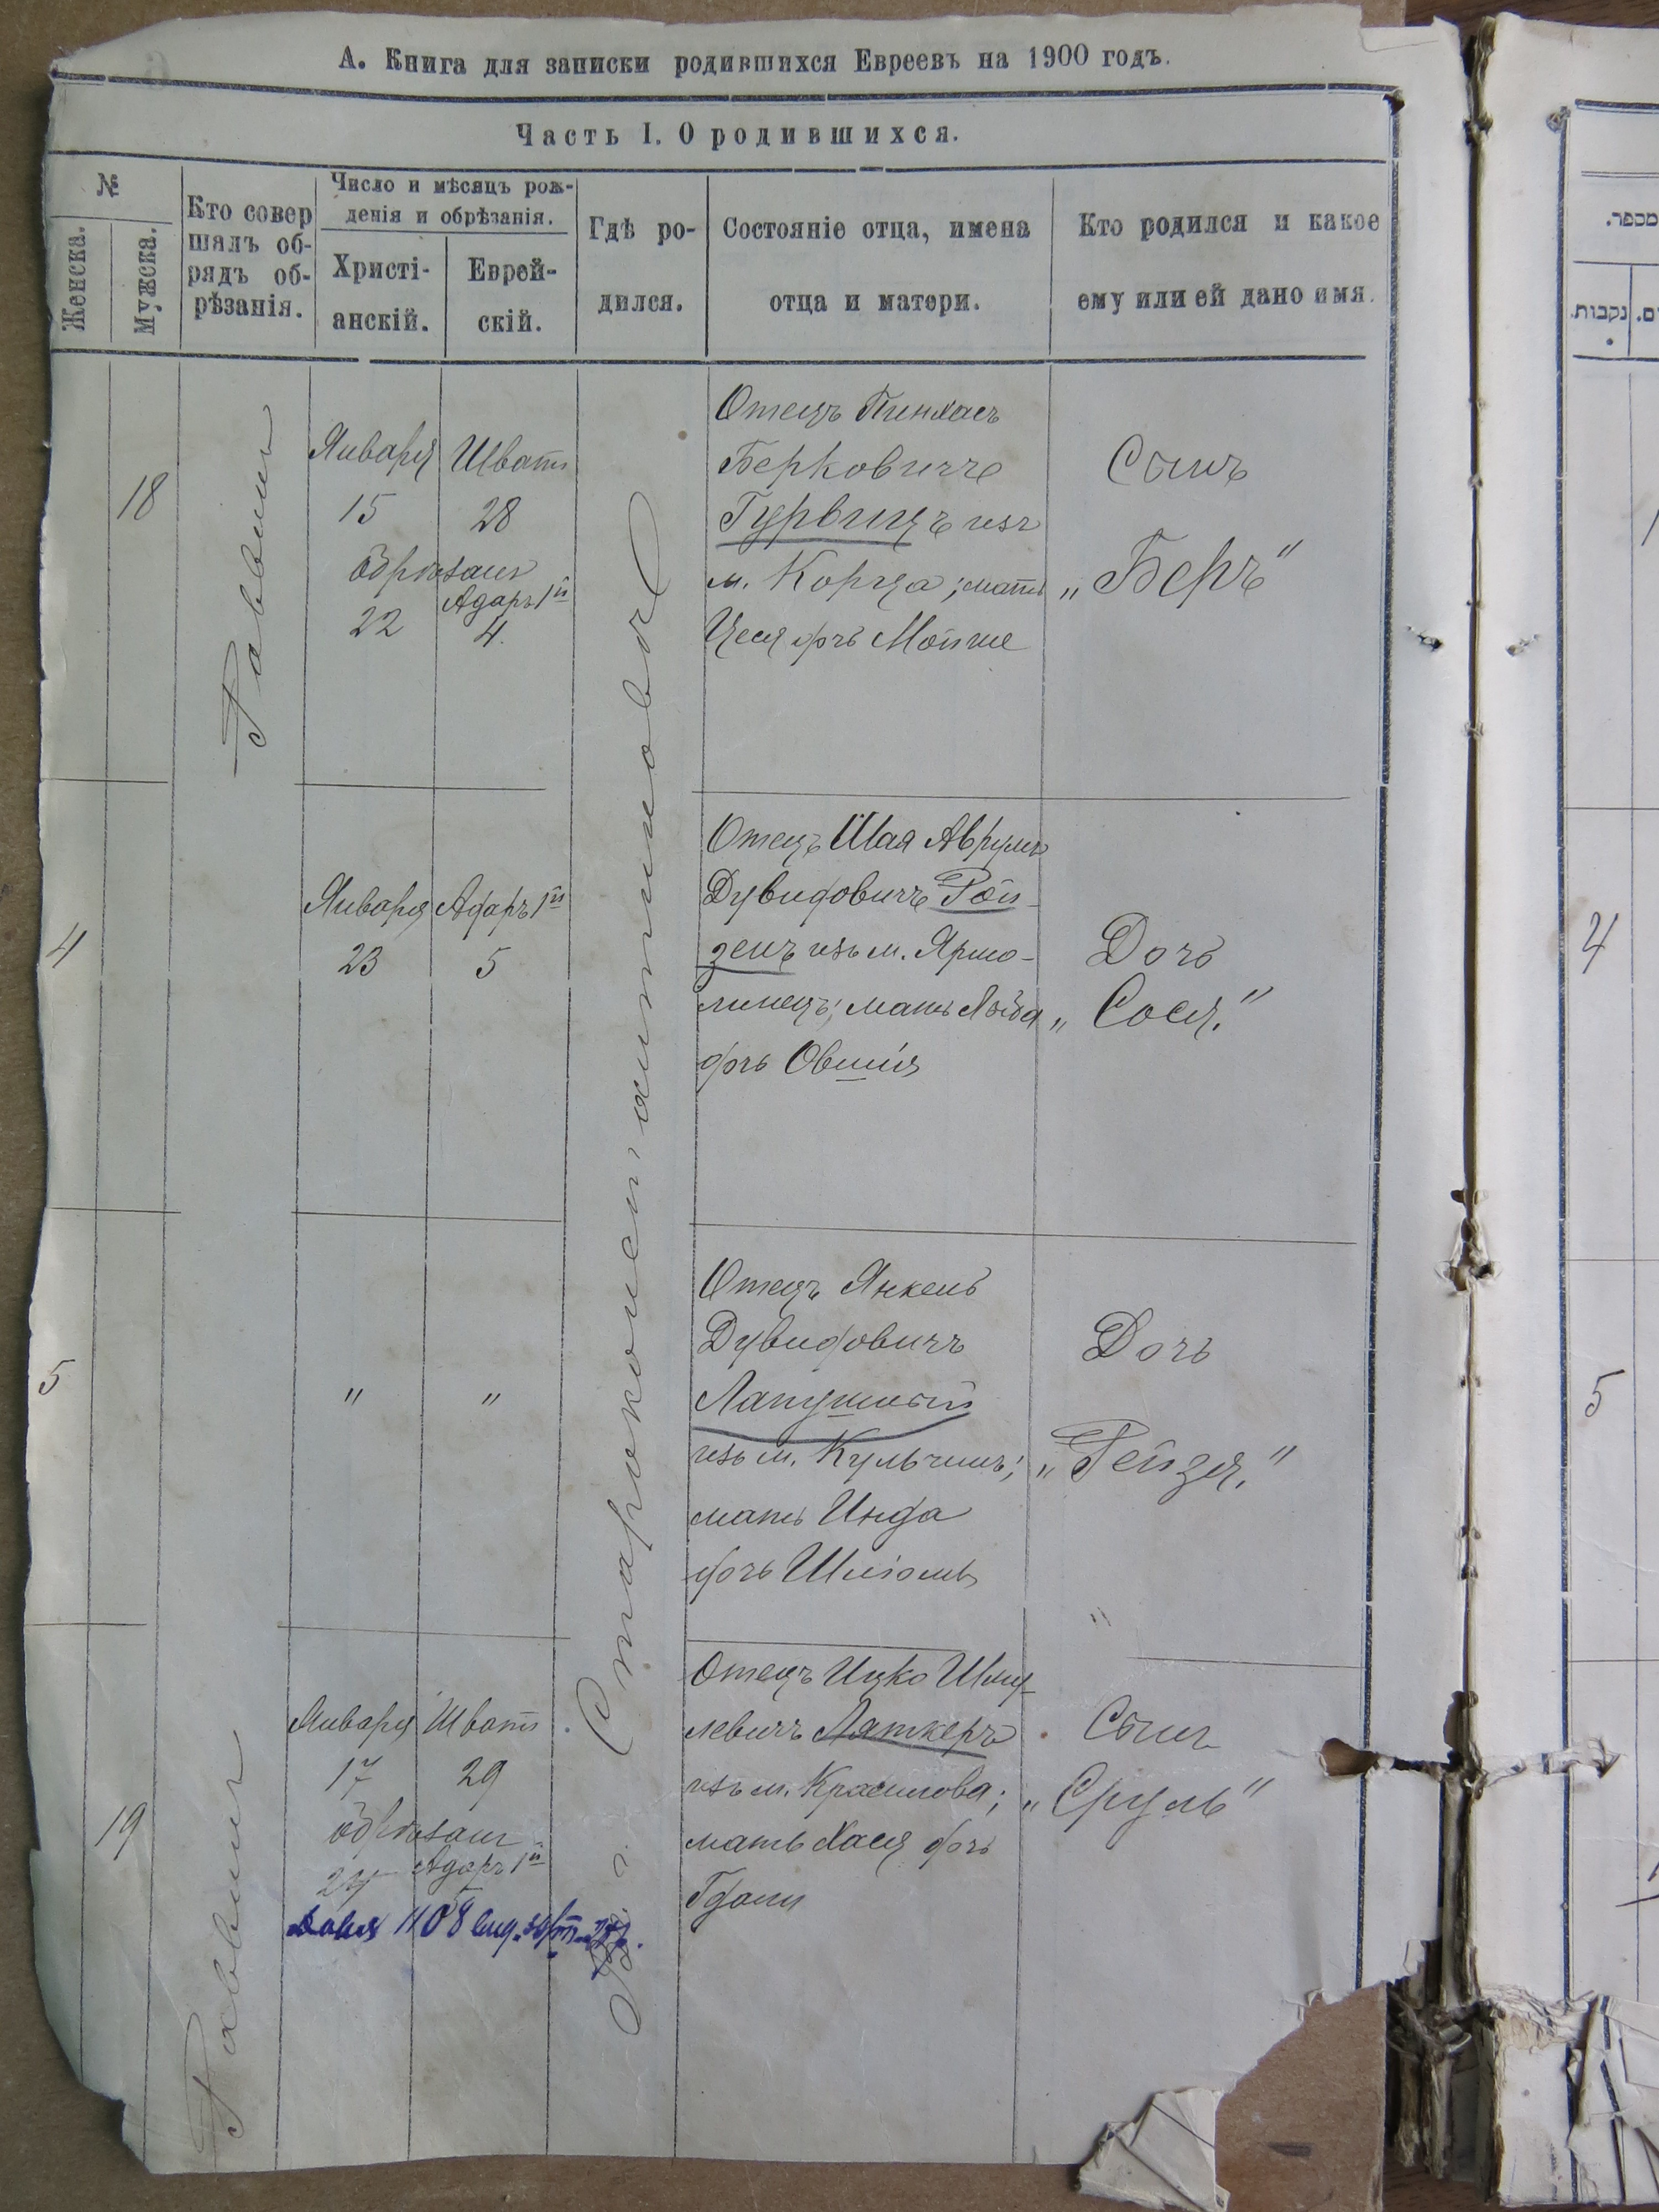 А. Книга для записки родившихся Евреевъ на 1900 годъ.
Часть I. О родившихся.
№
Женска.
Мужска.
Кто совер
шалъ об-
рядъ об-
рѣзанія.
Число и мѣсяцъ рож-
денія и обрѣзанія.
Христі-
анскій.
Еврей-
скій.
Гдѣ ро-
дился.
Состояніе отца, имена
отца и матери.
Кто родился и какое
ему или ей дано имя.
18
Раввинъ
Января
15
обрѣзанъ
22
Шватъ
28
Адаръ 1й
4.
Въ г. Староконстантиновѣ
Отецъ Пинхасъ
Берковичъ
Гурвицъ изъ
м. Корца; мать
Цеся дочь Мойше
Сынъ
„Беръ"
4
Января
23
Адаръ 1й
5
Отецъ Шая Аврумъ
Дувидовичъ Рой-
зенъ изъ м. Ярмо-
линецъ; мать
дочь Овшія
Дочь
„Сося."
5
"
"
Отецъ Янкель
Дувидовичъ
Лапушный
изъ м. Кульчинъ;
мать Инда
дочь Шліомы
Дочь
„Рейзя."
19
Раввинъ
Января
17
обрѣзанъ
24
Шватъ
29
Адаръ 1й
5
1108
Отецъ Ицко Шму-
левичъ Ляткеръ
изъ м. Красилова;
мать Хася дочь
Гдали
Сынъ
„Сруль"
מספר.
נקבות.
4
5